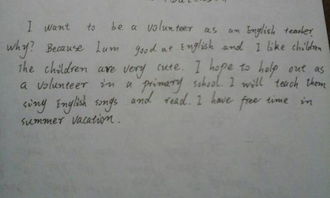 I want to be a volunteer as an English teacher
why? Because I am good at English and I like children
The children are very cute. I hope to help out as
a volunteer in a primary school. I will teach them
sing English songs and read. I have free time in
summer vacation.